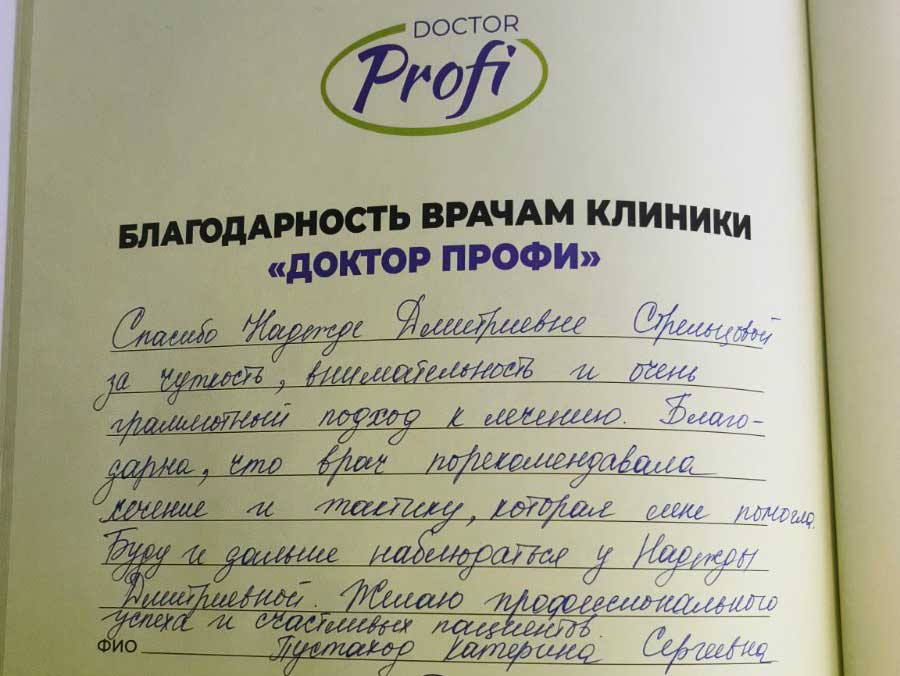 DOCTOR
Profi
БЛАГОДАРНОСТЬ ВРАЧАМ КЛИНИКИ
«ДОКТОР ПРОФИ»
Спасибо Надежде Дмитриевне Стрельцовой
за чуткость, внимательность и очень
грамотный подход к лечению. Благо-
дарна, что врач порекомендавала
лечение и тактику, которая мне помогла.
Буду и дальше наблюдаться у Надежды
Дмитриевной. Желаю профессионального
успеха и счастливых пациентов.
ФИО Пустаход Катерина Сергеевна